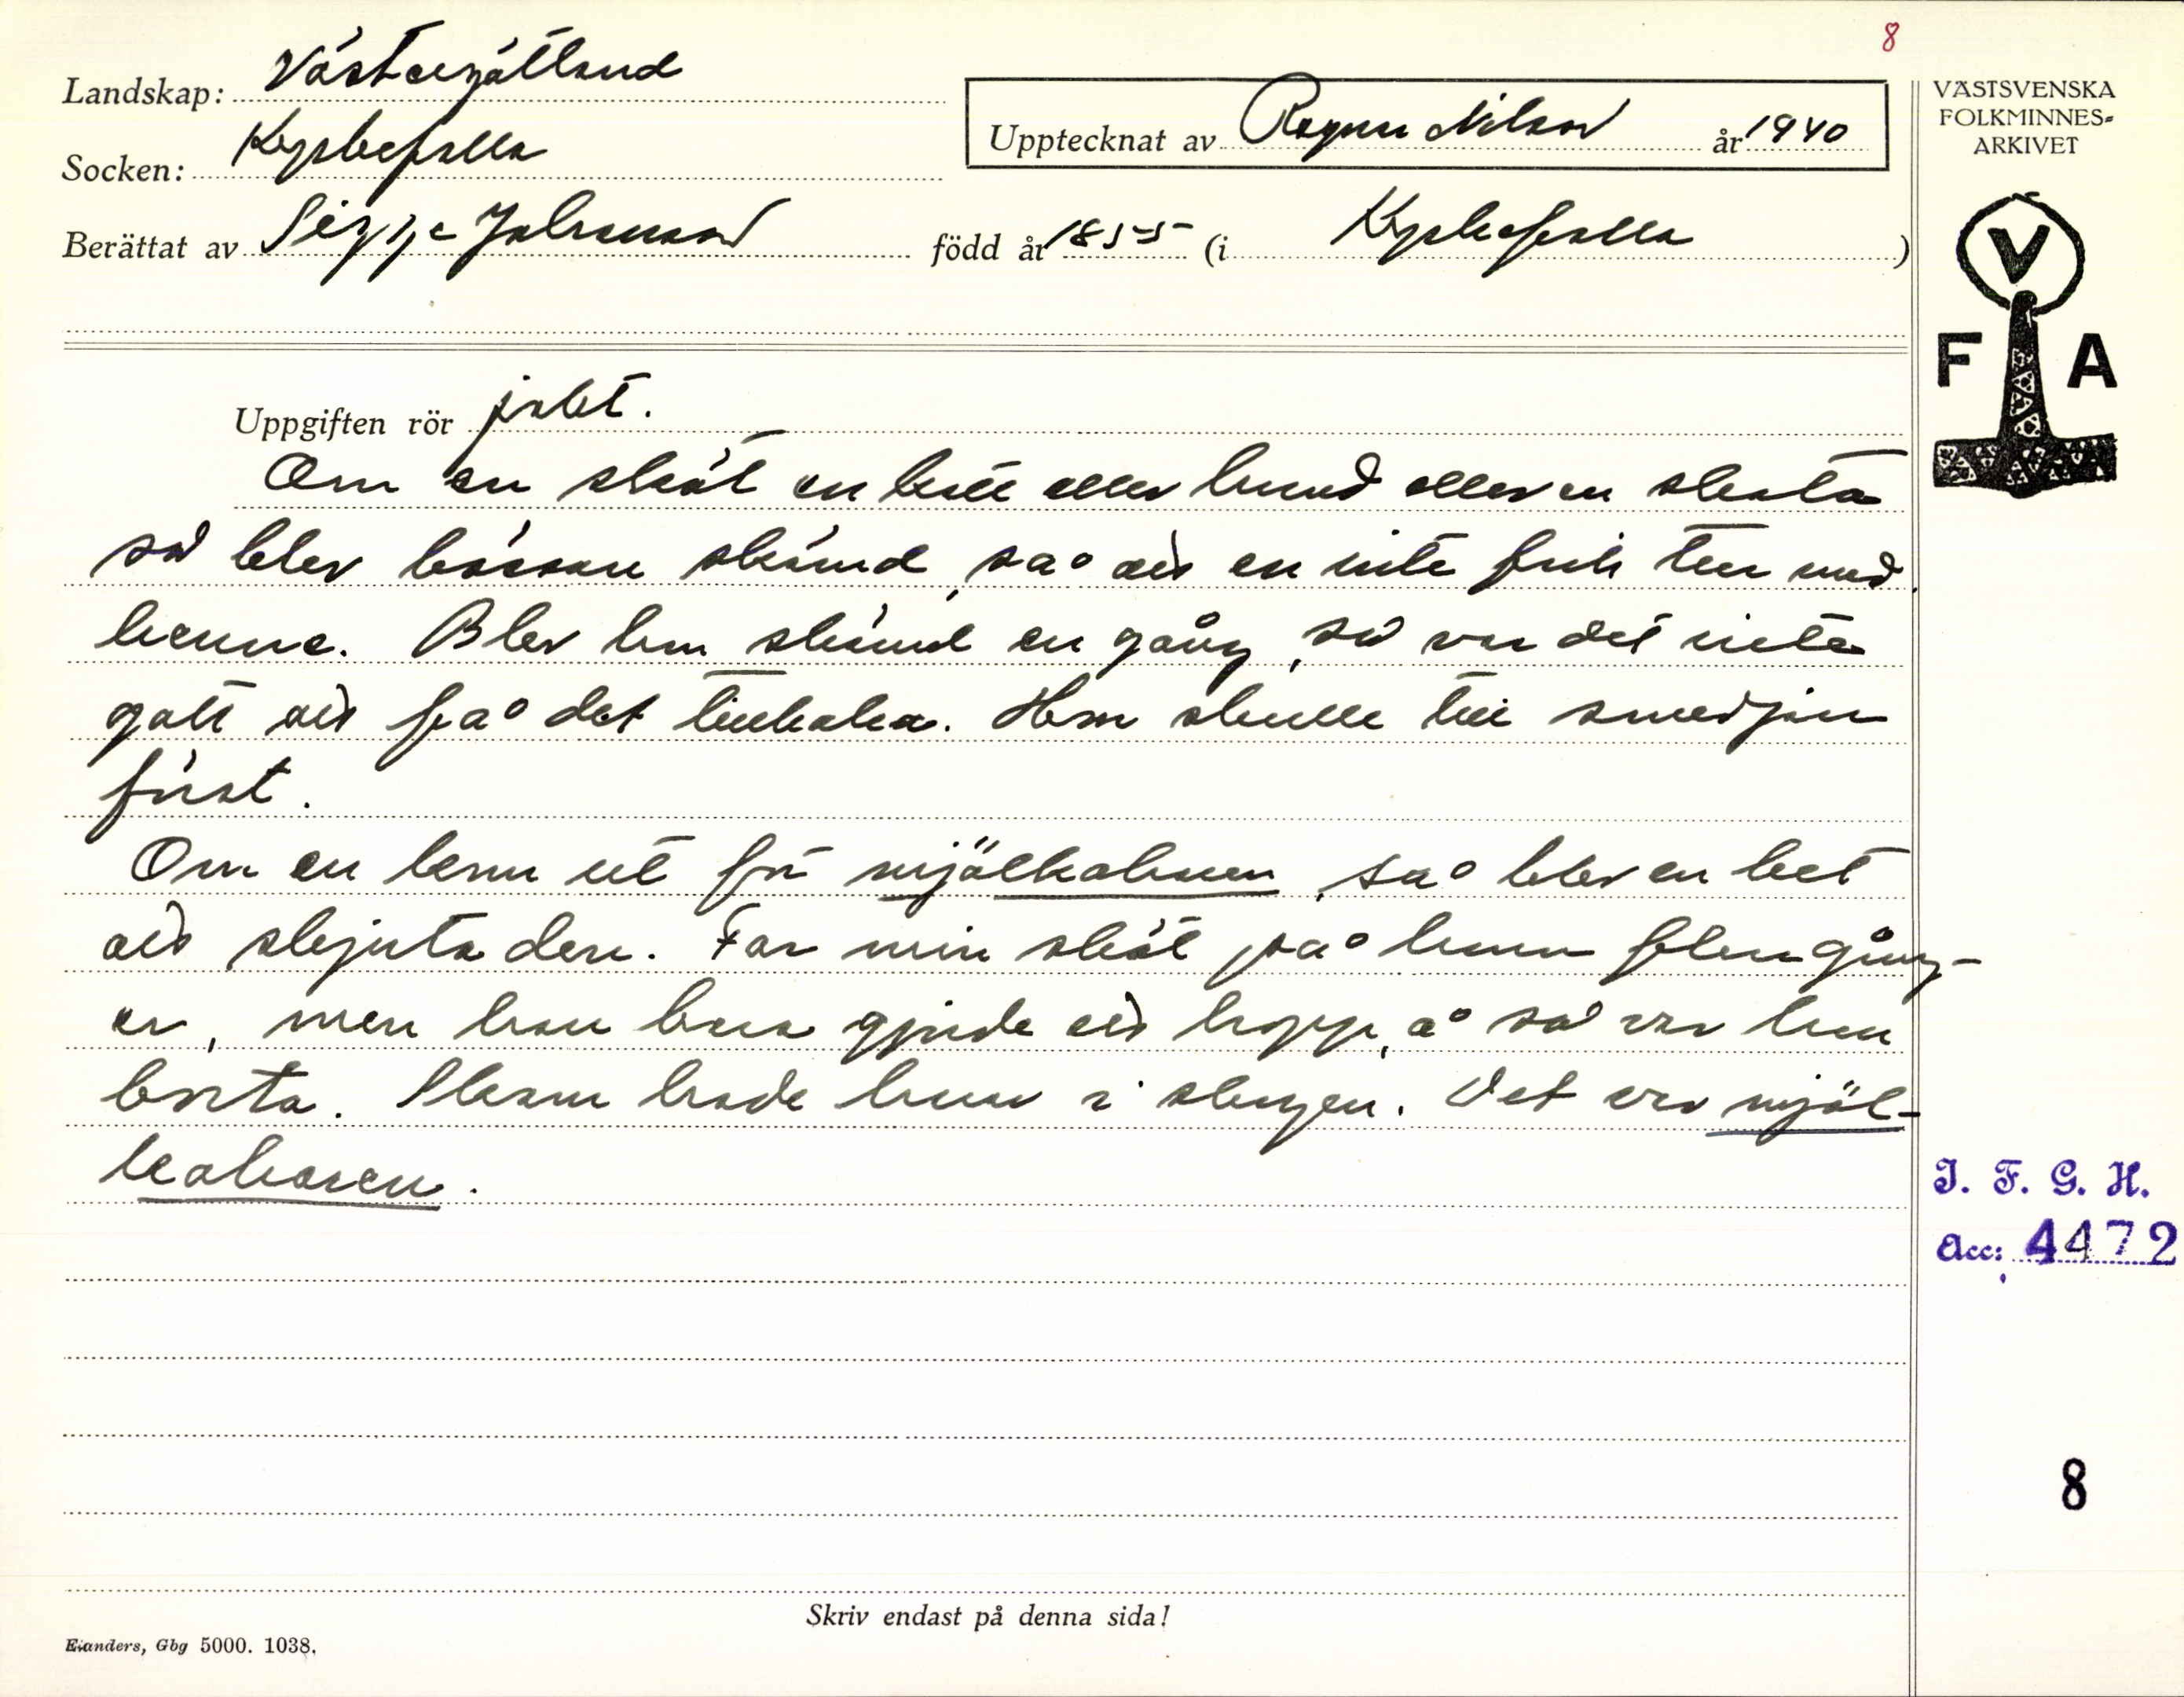 8
Landskap: Västergötland
Socken: Kyrkefalla
Upptecknat av Ragnar Nilsson år 1940
VÄSTSVENSKA
FOLKMINNES-
ARKIVET
Berättat av Johansson född år 1855 (i Kyrkefalla)
V
F A
Uppgiften rör jakt.
Om en sköt en katt eller hund eller en skata
så blev bössan skämd, så att en inte fick ter med
henne. Blev hon skämd en gång, så var det inte
gott att få det tillbaka. Hon skulle till smedjan
först.
Om en kom ut för mjölkaharen, så blev en lett
att skjuta den. Far min sköt på henn flera gång-
er, men han bara gjorde ett hopp, å så var han
borta. Skam hade henn i skogen. Det var mjöl-
kaharen.
I. F. G. H.
Acc: 4472
8
Skriv endast på denna sida!
Elanders, Gbg 5000. 1038.